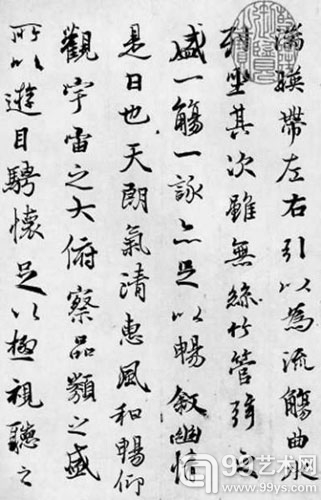 湍暎帶左右引以為流觴曲水
列坐其次雖無絲竹管弦之
盛一觴一詠亦足以暢敘幽情
是日也天朗氣清惠風和暢仰
觀宇宙之大俯察品類之盛
所以遊目騁懷足以極視聽之
99艺术网
99ys.com